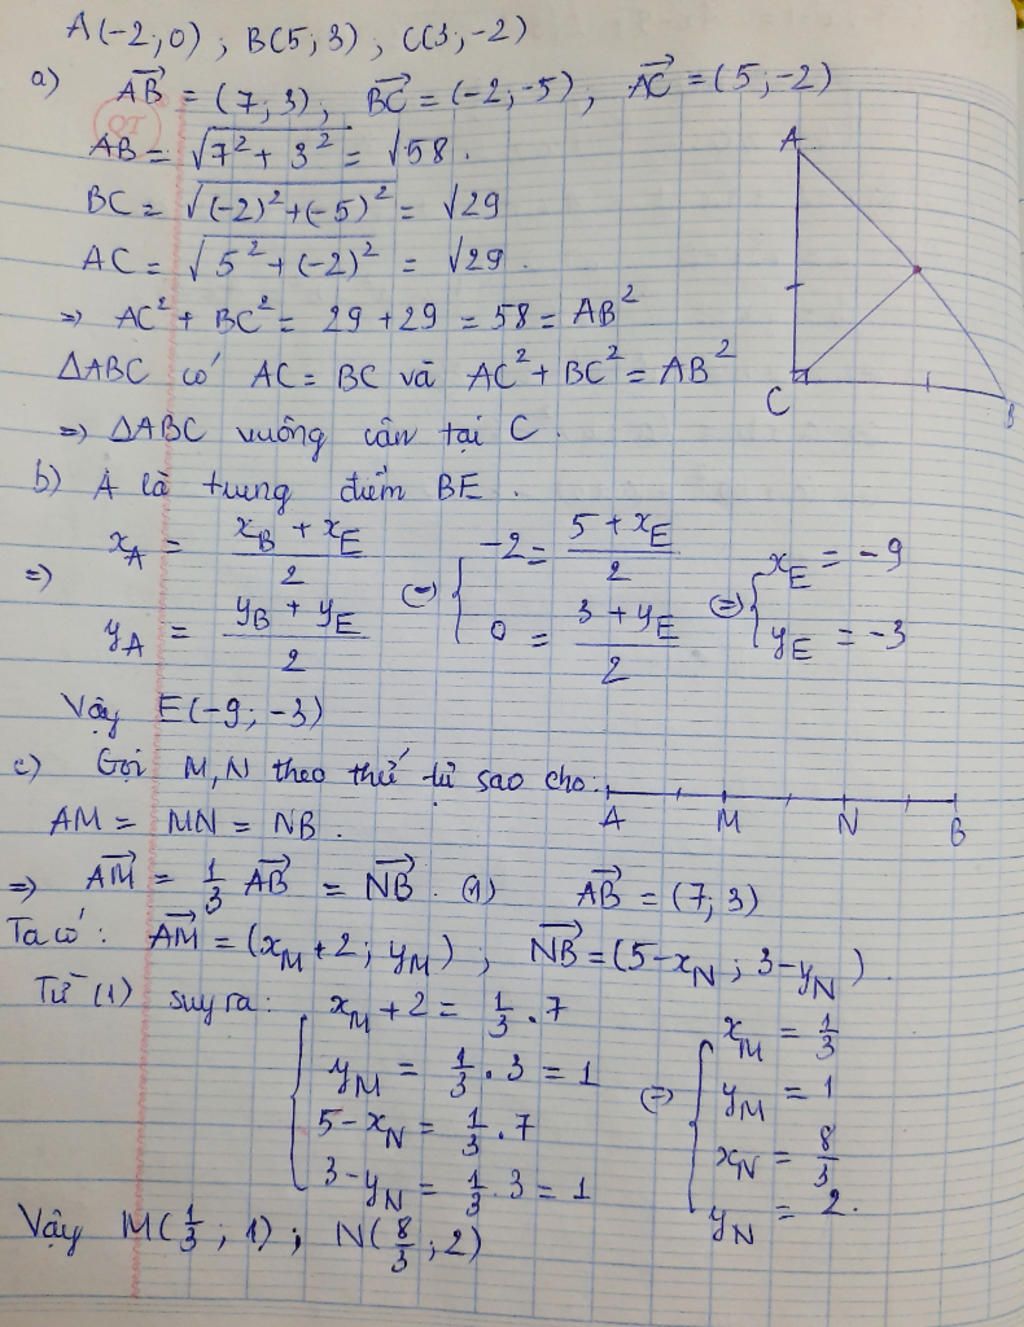 A(-2;0) ; B(5;3) ; C(3;-2)
a) →AB = (7;3), →BC = (-2;-5), →AC = (5;-2)
QT
AB = √7² + 3² = √58.
BC = √(-2)²+(-5)² = √29
AC = √5²+(-2)² = √29.
⇒ AC² + BC² = 29 + 29 = 58 = AB²
ΔABC có AC = BC và AC² + BC² = AB²
⇒ ΔABC vuông cân tại C.
A
C
B
b) A là trung điểm BE.
⇒ x_A = (x_B + x_E)/2 (=) { -2 = (5 + x_E)/2 (=) { x_E = -9
y_A = (y_B + y_E)/2 0 = (3 + y_E)/2 y_E = -3
Vậy E(-9; -3)
c) Gọi M,N theo thứ tự sao cho:
A M N B
AM = MN = NB.
⇒ →AM = 1/3 →AB = →NB. (1) →AB = (7;3)
Ta có: →AM = (x_M + 2; y_M) ; →NB = (5 - x_N ; 3 - y_N).
Từ (1) suy ra: { x_M + 2 = 1/3 . 7 (=) { x_M = 1/3
y_M = 1/3 . 3 = 1 y_M = 1
5 - x_N = 1/3 . 7 x_N = 8/3
3 - y_N = 1/3 . 3 = 1 y_N = 2.
Vậy M(1/3 ; 1) ; N(8/3 ; 2)